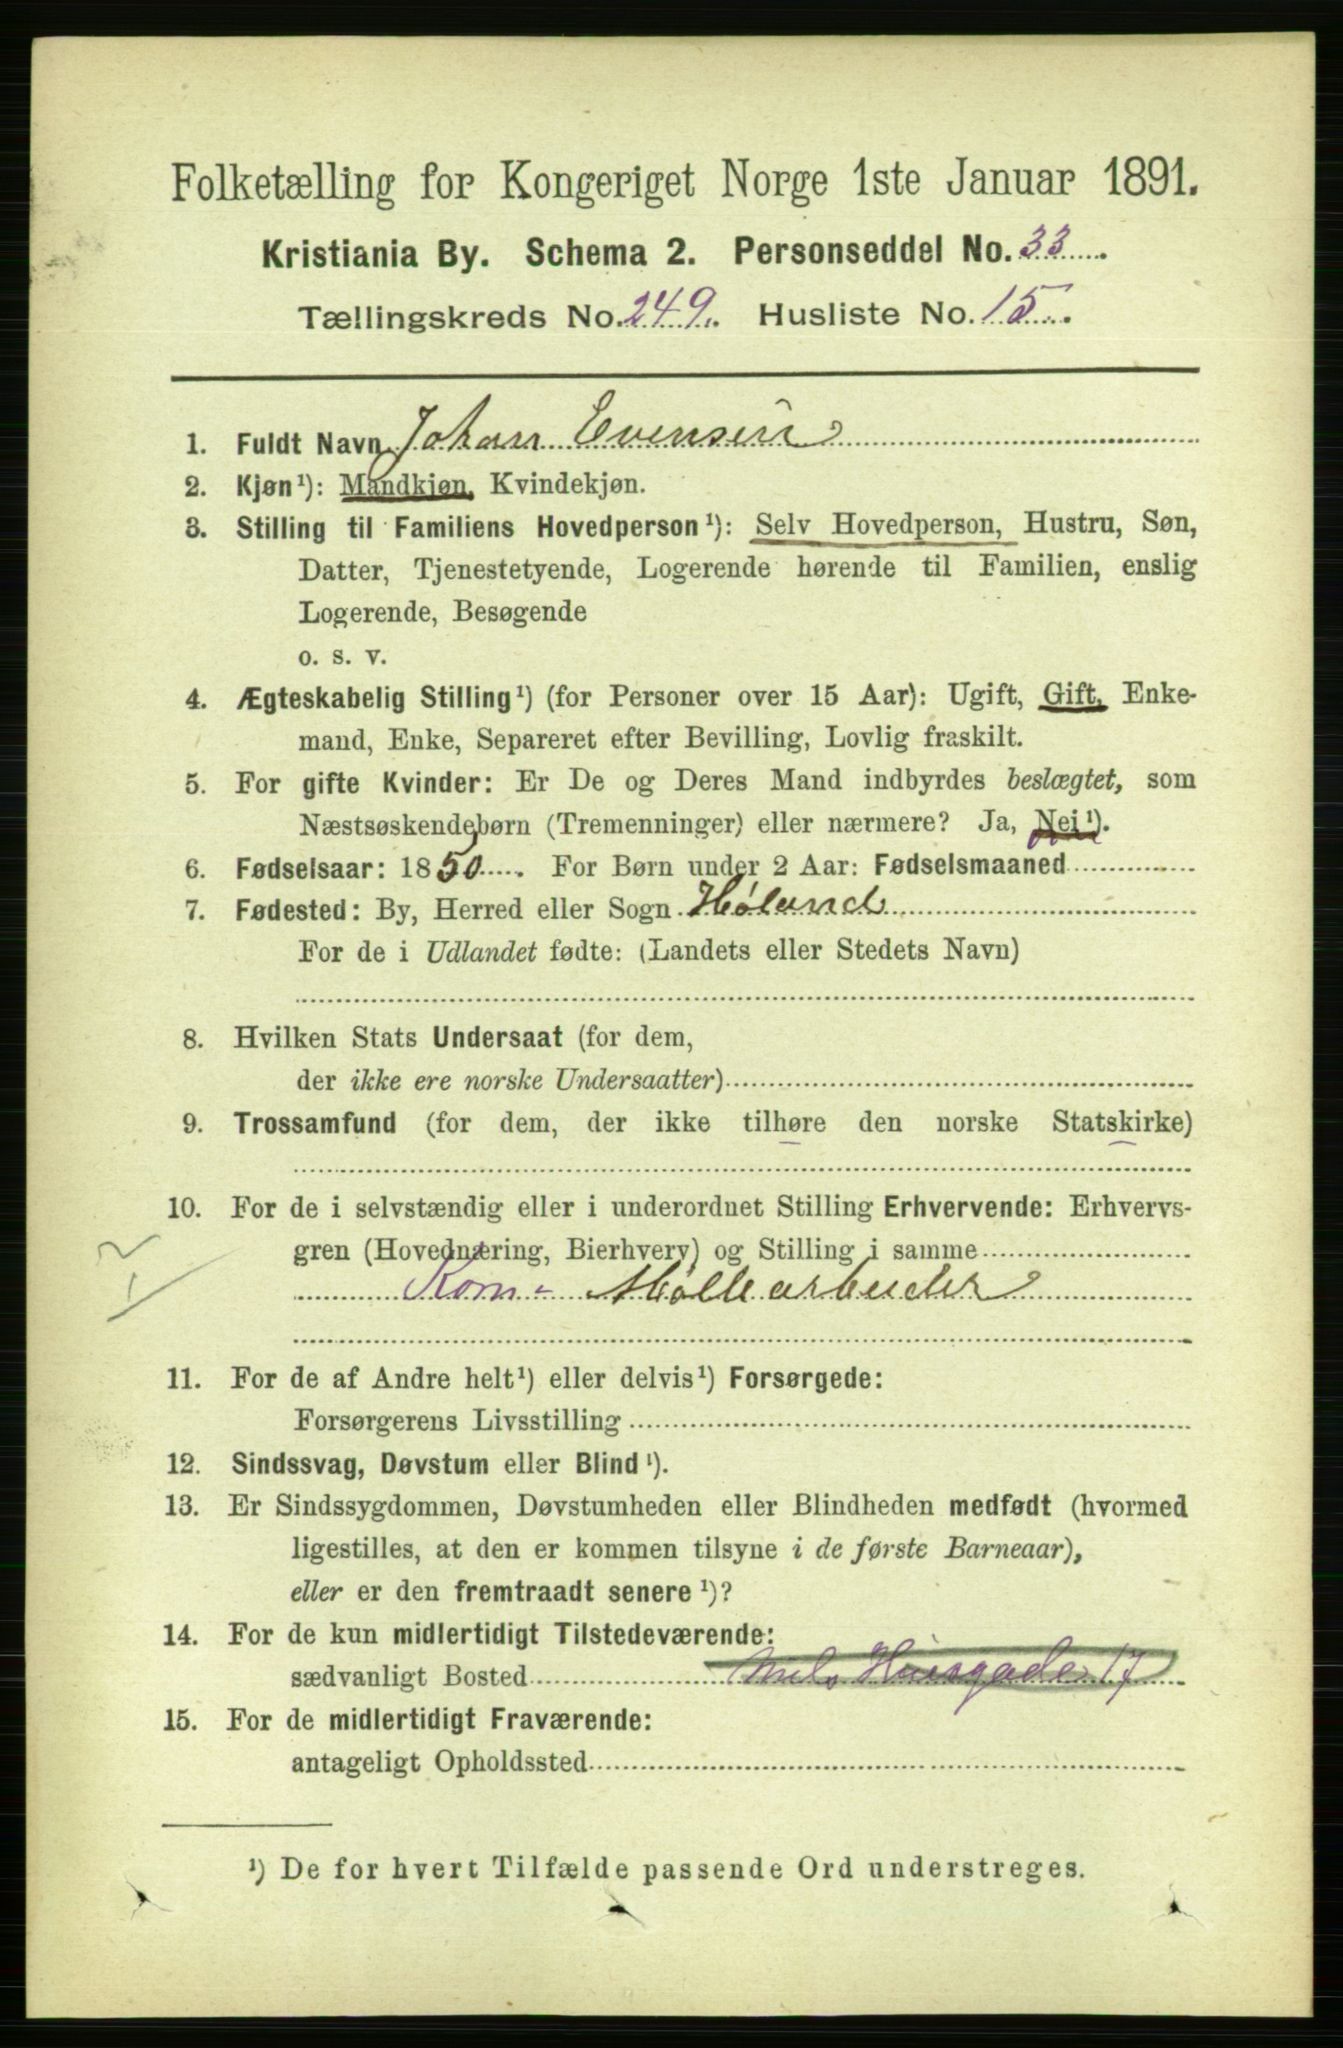 Folketælling for Kongeriget Norge 1ste Januar 1891.
Kristiania By. Schema 2. Personseddel No. 33
Tællingskreds No. 249. Husliste No. 15
1. Fuldt Navn Johan Evensen
2. Kjøn¹): Mandkjøn, Kvindekjøn.
3. Stilling til Familiens Hovedperson¹): Selv Hovedperson, Hustru, Søn,
Datter, Tjenestetyende, Logerende hørende til Familien, enslig
Logerende, Besøgende
o. s. v.
4. Ægteskabelig Stilling¹) (for Personer over 15 Aar): Ugift, Gift, Enke-
mand, Enke, Separeret efter Bevilling, Lovlig fraskilt.
5. For gifte Kvinder: Er De og Deres Mand indbyrdes beslægtet, som
Næstsøskendebørn (Tremenninger) eller nærmere? Ja, Nei¹).
6. Fødselsaar: 1850. For Børn under 2 Aar: Fødselsmaaned
7. Fødested: By, Herred eller Sogn Høland
For de i Udlandet fødte: (Landets eller Stedets Navn)
8. Hvilken Stats Undersaat (for dem,
der ikke ere norske Undersaatter)
9. Trossamfund (for dem, der ikke tilhøre den norske Statskirke)
10. For de i selvstændig eller i underordnet Stilling Erhvervende: Erhvervs-
gren (Hovednæring, Bierhverv) og Stilling i samme
Korn- Møllearbeider
11. For de af Andre helt¹) eller delvis¹) Forsørgede:
Forsørgerens Livsstilling
12. Sindssvag, Døvstum eller Blind¹).
13. Er Sindssygdommen, Døvstumheden eller Blindheden medfødt (hvormed
ligestilles, at den er kommen tilsyne i de første Barneaar),
eller er den fremtraadt senere¹)?
14. For de kun midlertidigt Tilstedeværende:
sædvanligt Bosted 17
15. For de midlertidigt Fraværende:
antageligt Opholdssted
¹) De for hvert Tilfælde passende Ord understreges.